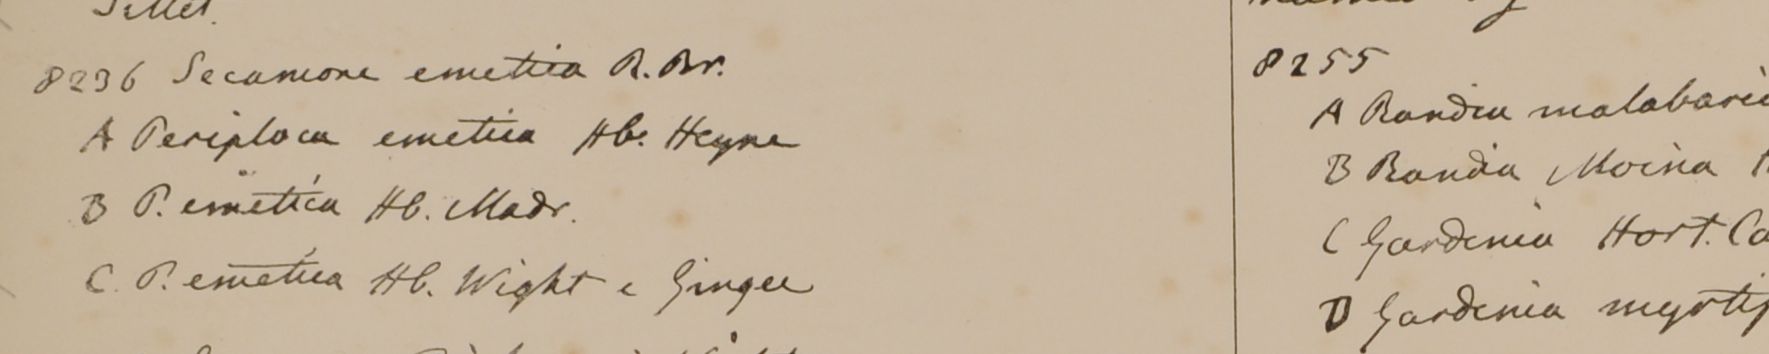 8236 Secamone emetica R. Br.
A Periploca emetica Hb. Heyne
B P. emetica Hb. Madr.
C P. emetica Hb. Wight e Gingee
8255
A Randia malabaric
B Randia Moina
C Gardenia Hort. Ca
D Gardenia myrtif